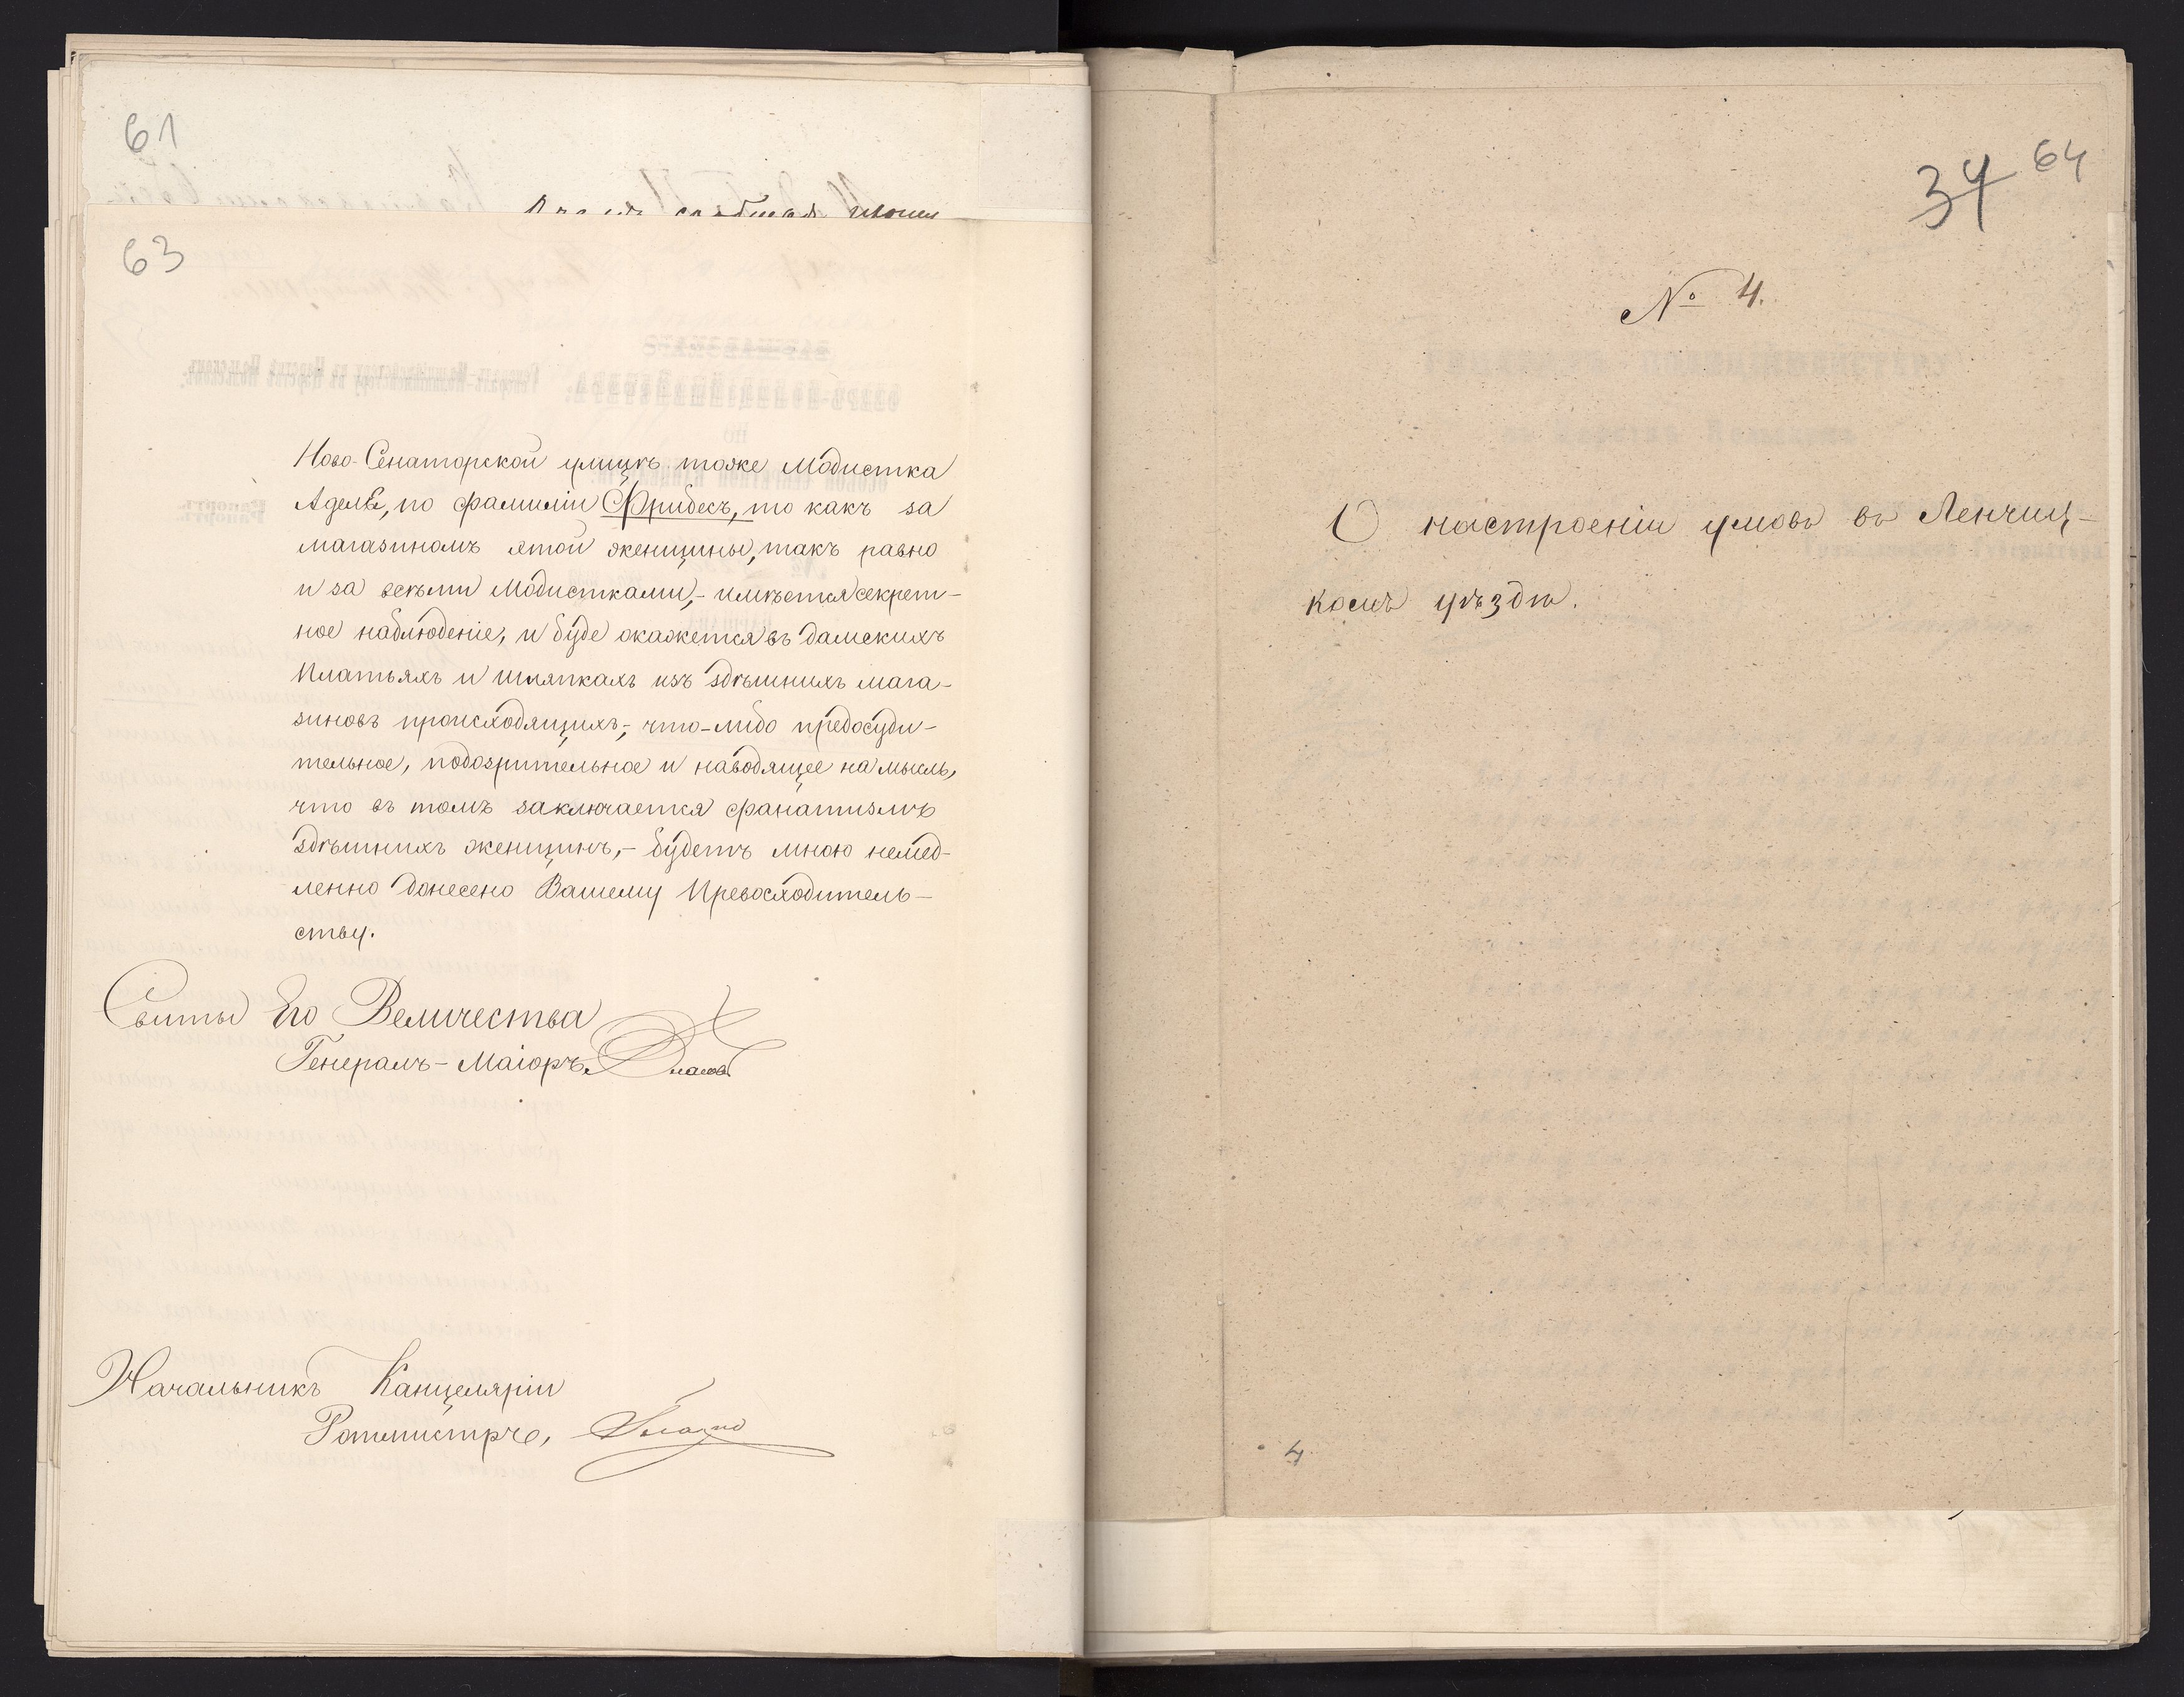 61
63
Ново-Сенаторской улицѣ тоже Модистка
Адель, по фамиліи Фрибесъ, то какъ за
магазиномъ этой женщины, такъ равно
и за всѣми Модистками,- имѣется секрет-
ное наблюденіе, и буде окажется въ дамскихъ
платьяхъ и шляпкахъ изъ здѣшнихъ мага-
зиновъ происходящихъ,- что-либо предосуди-
тельное, подозрительное и наводящее на мысль,
что въ томъ заключается фанатизмъ
здѣшнихъ женщинъ,- будетъ мною немед-
ленно донесено Вашему Превосходитель-
ству.
Свиты Его Величества
Генералъ-Маіоръ Власовъ
Начальникъ Канцеляріи
Ротмистръ,
34 64
№ 4.
О настроеніи умовъ въ Ленчиц-
комъ уѣздѣ.
4